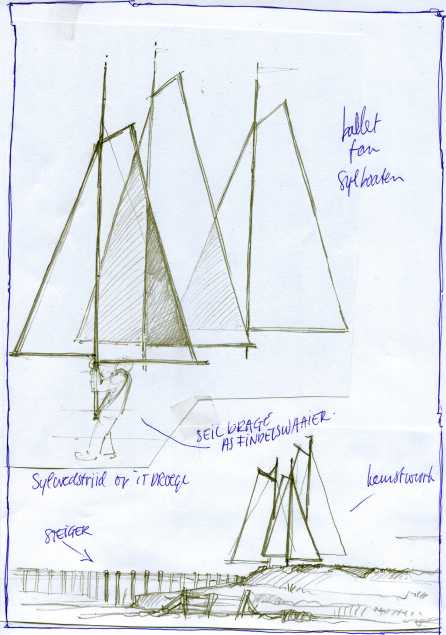 ballet
fan
Sylboaten
SEIL DRAGE
AS FINDELSWAAIER.
Sylwedstriid op 'IT DROEGE
kunstwurk
STEIGER